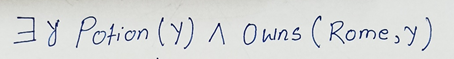 ∃ y Potion (Y) ∧ Owns (Rome, y)